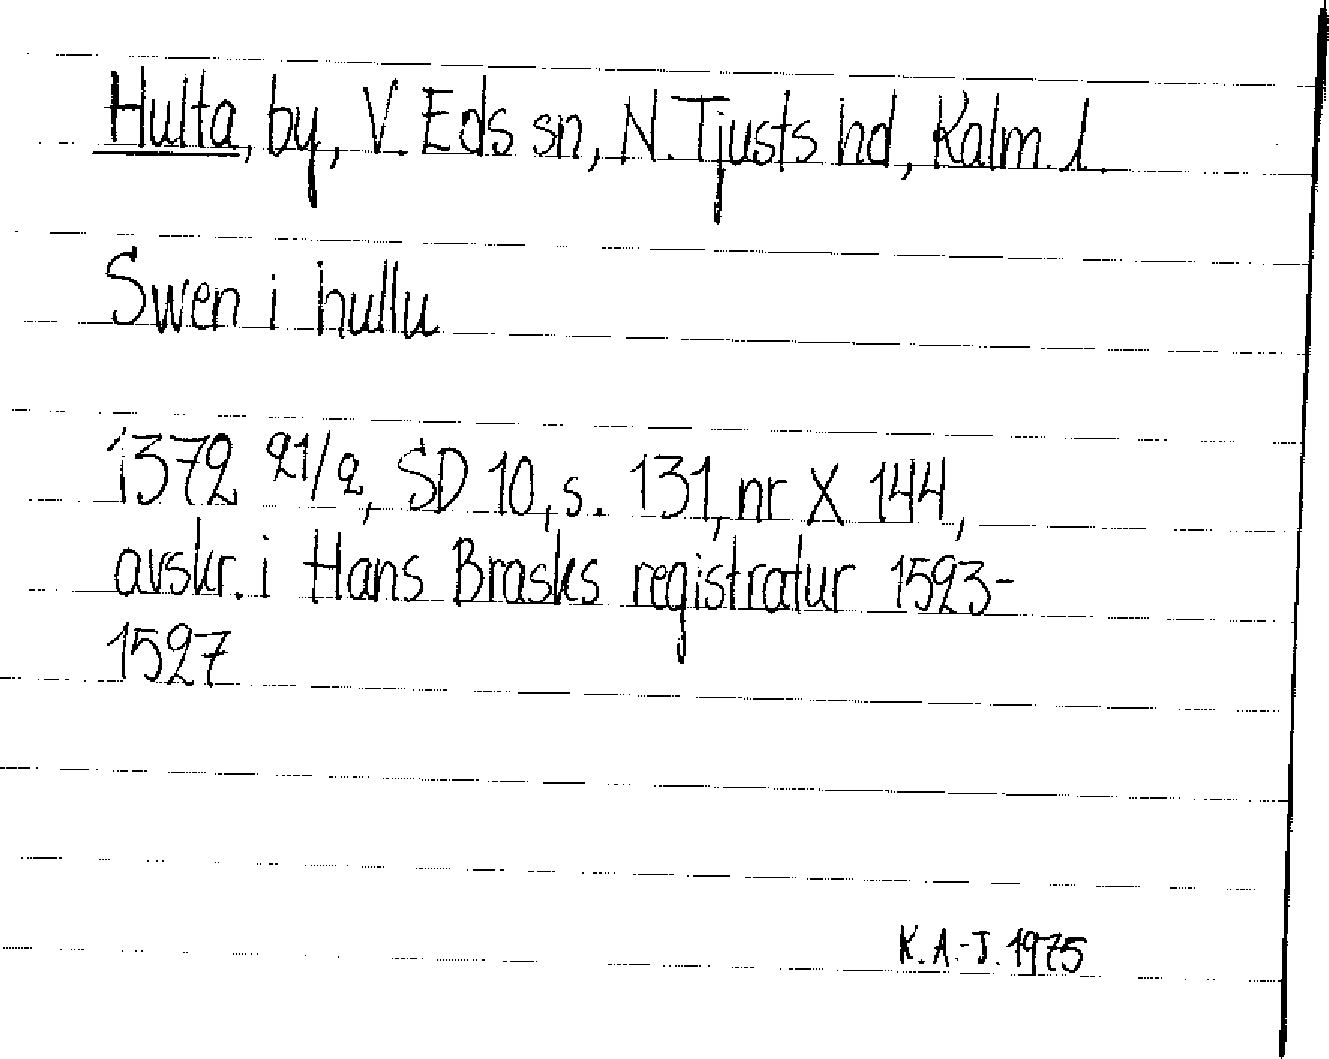 Hulta, by, V. Eds sn, N. Tjusts hd, Kalm l.
Swen i hullu
1372 21/2, SD 10, s. 131, nr X 144,
avskr. i Hans Brasks registratur 1523-
1527
K.A.-J. 1975